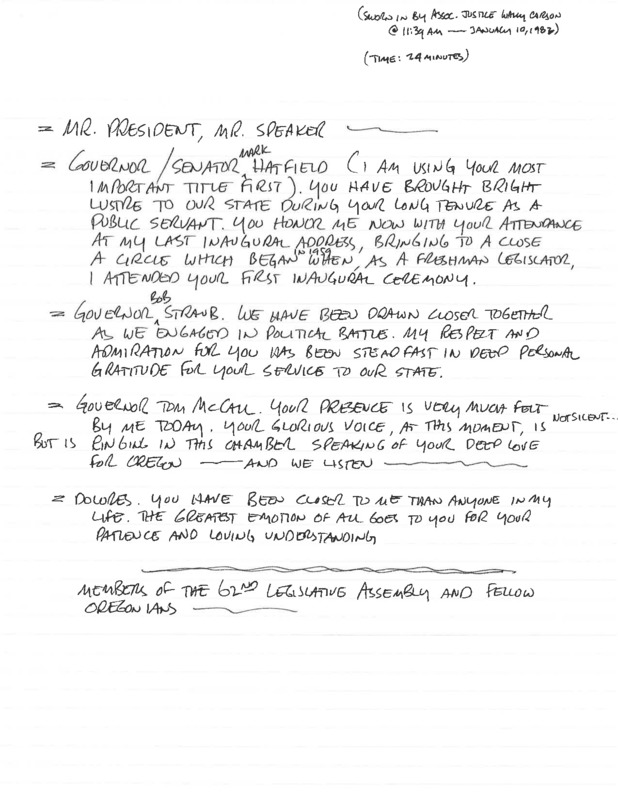 (SWORN IN BY ASSOC. JUSTICE WALLY CARSON
@ 11:39 AM — JANUARY 10, 1983)
(TIME: 24 MINUTES)
= MR. PRESIDENT, MR. SPEAKER
= GOVERNOR / SENATOR MARK HATFIELD (I AM USING YOUR MOST
IMPORTANT TITLE FIRST). YOU HAVE BROUGHT BRIGHT
LUSTRE TO OUR STATE DURING YOUR LONG TENURE AS A
PUBLIC SERVANT. YOU HONOR ME NOW WITH YOUR ATTENDANCE
AT MY LAST INAUGURAL ADDRESS, BRINGING TO A CLOSE
A CIRCLE WHICH BEGAN IN 1959 WHEN, AS A FRESHMAN LEGISLATOR,
I ATTENDED YOUR FIRST INAUGURAL CEREMONY.
= GOVERNOR BOB STRAUB. WE HAVE BEEN DRAWN CLOSER TOGETHER
AS WE ENGAGED IN POLITICAL BATTLE. MY RESPECT AND
ADMIRATION FOR YOU HAS BEEN STEADFAST IN DEEP PERSONAL
GRATITUDE FOR YOUR SERVICE TO OUR STATE.
= GOVERNOR TOM McCALL. YOUR PRESENCE IS VERY MUCH FELT
BY ME TODAY. YOUR GLORIOUS VOICE, AT THIS MOMENT, IS NOT SILENT...
BUT IS RINGING IN THIS CHAMBER SPEAKING OF YOUR DEEP LOVE
FOR OREGON — AND WE LISTEN —
= DOLORES. YOU HAVE BEEN CLOSER TO ME THAN ANYONE IN MY
LIFE. THE GREATEST EMOTION OF ALL GOES TO YOU FOR YOUR
PATIENCE AND LOVING UNDERSTANDING
MEMBERS OF THE 62ND LEGISLATIVE ASSEMBLY AND FELLOW
OREGONIANS